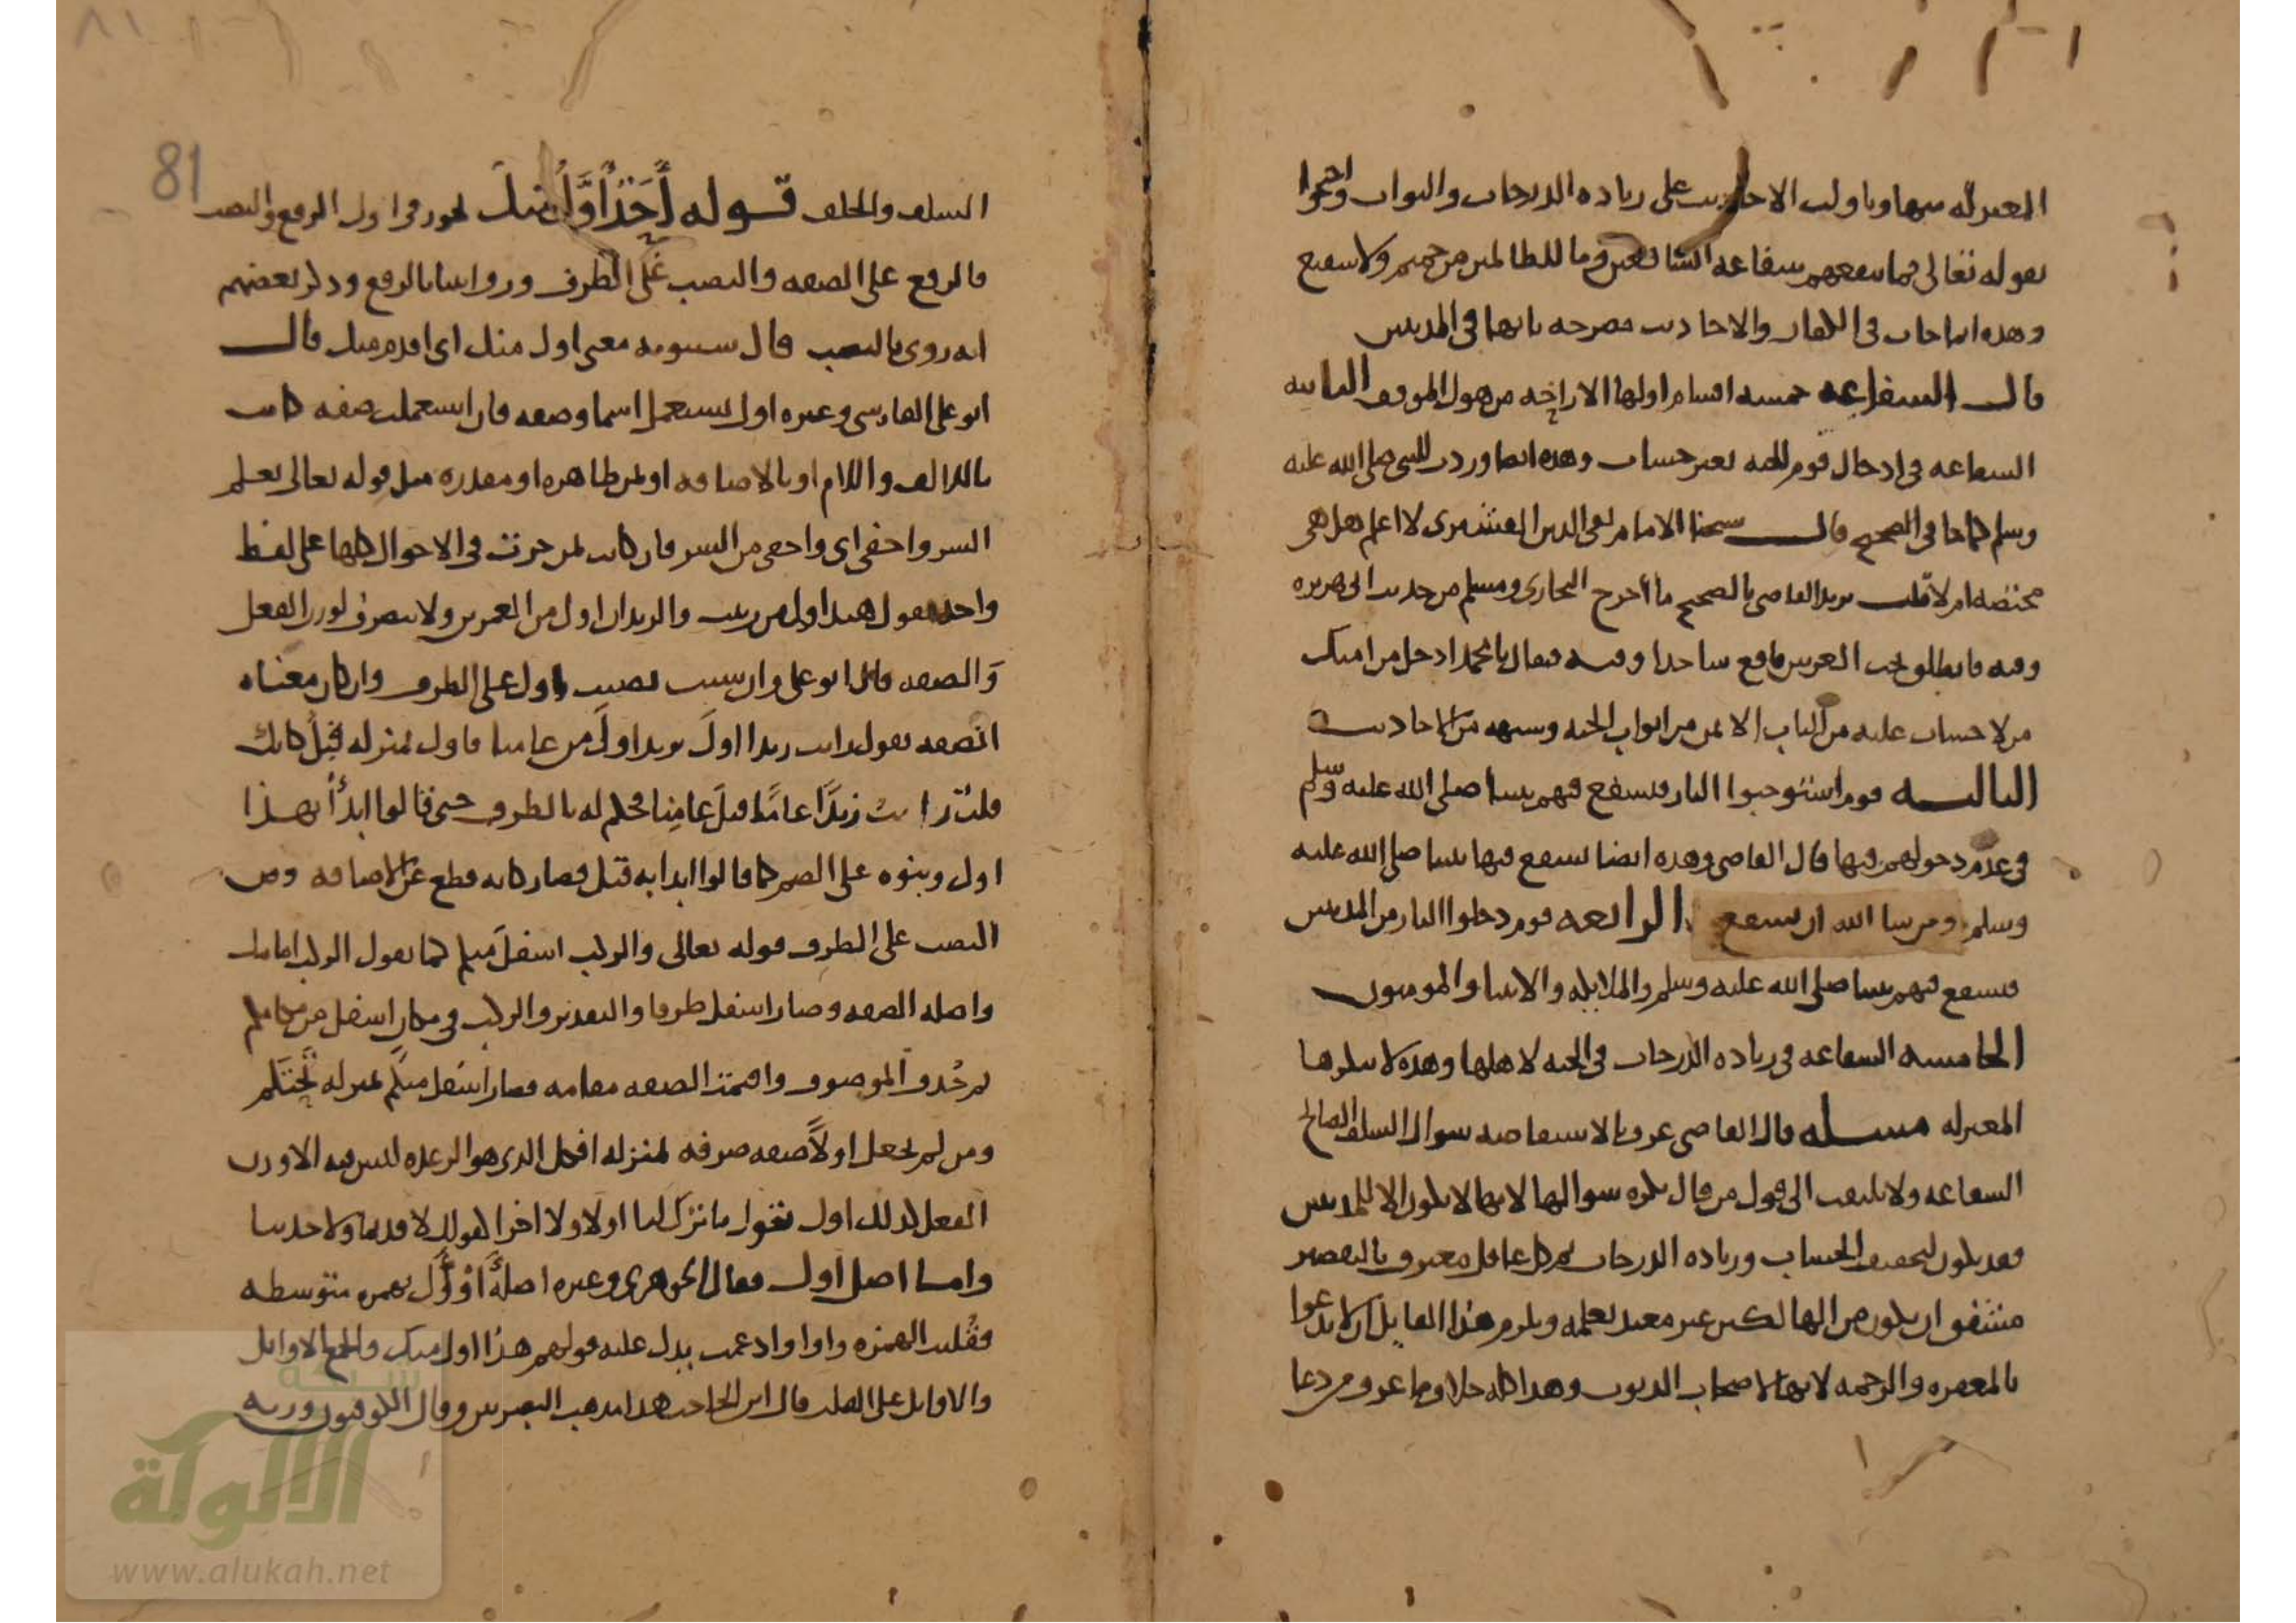 المعتزلة منها وتأولت الاحاديث على زيادة الدرجات والثواب واحتجوا
بقوله تعالى فما تنفعهم شفاعة الشافعين وما للظالمين من حميم ولا شفيع
وهذه انما جات في الكفار والاحاديث مصرحة بانها في المذنبين
قال الشفاعة خمسة اقسام اولها الاراحة من هول الموقف الثانية
الشفاعة في ادخال قوم الجنة بغير حساب وهذه ايضا وردت للنبي صلى الله عليه
وسلم كما جا في الصحيح قال شيخنا الامام تقي الدين القشيري لا اعلم هل هي
مختصة ام لا قلت يريد القاضي بالصحيح ما أخرج البخاري ومسلم من حديث ابي هريرة
وفيه فانطلق تحت العرش فاقع ساجدا وفيه فيقال يا محمد ادخل من امتك
من لا حساب عليه من الباب الايمن من ابواب الجنة وشبهه من الاحاديث
الثالثة قوم استوجبوا النار فيشفع فيهم نبينا صلى الله عليه وسلم
في عدم دخولهم فيها قال القاضي وهذه ايضا يشفع فيها نبينا صلى الله عليه
وسلم ومن شا الله ان يشفع الرابعة قوم دخلوا النار من المذنبين
فيشفع فيهم نبينا صلى الله عليه وسلم والملايكة والانبيا والمومنون
الخامسة الشفاعة في زيادة الدرجات في الجنة لاهلها وهذه لا ينكرها
المعتزلة مسئلة قال القاضي عرف بالاستفاضة سوال السلف الصالح
الشفاعة ولا يلتفت الى قول من قال يكره سوالها لانها لا يكون الا للمذنبين
فقد يكون لتخفيف الحساب وزيادة الدرجات ثم كل عاقل معترف بالتقصير
مشفق ان يكون من الهالكين غير معتد بعمله ويلزم هذا القايل ان لا يدعوا
بالمغفرة والرحمة لانها لاصحاب الذنوب وهذا كله خلاف ما عرف من دعا
81
السلف والخلف قوله أَحَدٌ أَوَّلُ منك يجوز في اول الرفع والنصب
فالرفع على الصفة والنصب على الظرف وروايتنا بالرفع وذكر بعضهم
انه روى بالنصب قال سيبويه معنى اول منك اي اقدم منك قال
ابو علي الفارسي وغيره اول يستعمل اسما وصفة فان استعملت صفة كانت
بالالف واللام او بالاضافة او بمن ظاهرة او مقدرة مثل قوله تعالى يعلم
السر واخفى اي واخفى من السر فان كانت بمن جرت في الاحوال كلها على لفظ
واحد يقول هند اول من زينب والزيدان اول من العمرين ولا يتصرف لوزن الفعل
وَالصفة قال ابو علي وان شيت نصبت اول على الظرف وان كان معناه
الصفة يقول رايت زيدا اولَ يريد اولَ من عامنا فاول بمنزلة قبل كانك
قلت رايت زيدًا عامًا قبلَ عامِنا فحكم له بالظرف حتى قالوا ابدأ بهذا
اول وبنوه على الضم كما قالوا ابدا به قبل فصار كانه قطع عن الاضافة ومن
النصب على الظرف قوله تعالى والركب اسفلَ منكم كما يقول الركب امامك
واصله الصفة وصار اسفل ظرفا والتقدير والركب في مكان اسفل من مكانكم
ثم حُذف الموصوف واقيمت الصفة مقامه فصار اسفل منكم بمنزلة تحتَكم
ومن لم يجعل اولاً صفة صرفه بمنزلة افكل الذي هو الرعدة ليس فيه الا وزن
الفعل كذلك اول تقول ما ترك لنا اولا ولا اخرا كقولك لا قديما ولا حديثا
واما اصل اول فقال الجوهري وغيره اصله أَوْأَل بهمزة متوسطة
فقُلبت الهمزة واوا وادغمت يدل عليه قولهم هذا اول منك والجمع الاوايل
والاوالى على القلب قال ابن الحاجب هذا مذهب البصريين وقال الكوفيون وزنه
شبكة
الألوكة
www.alukah.net